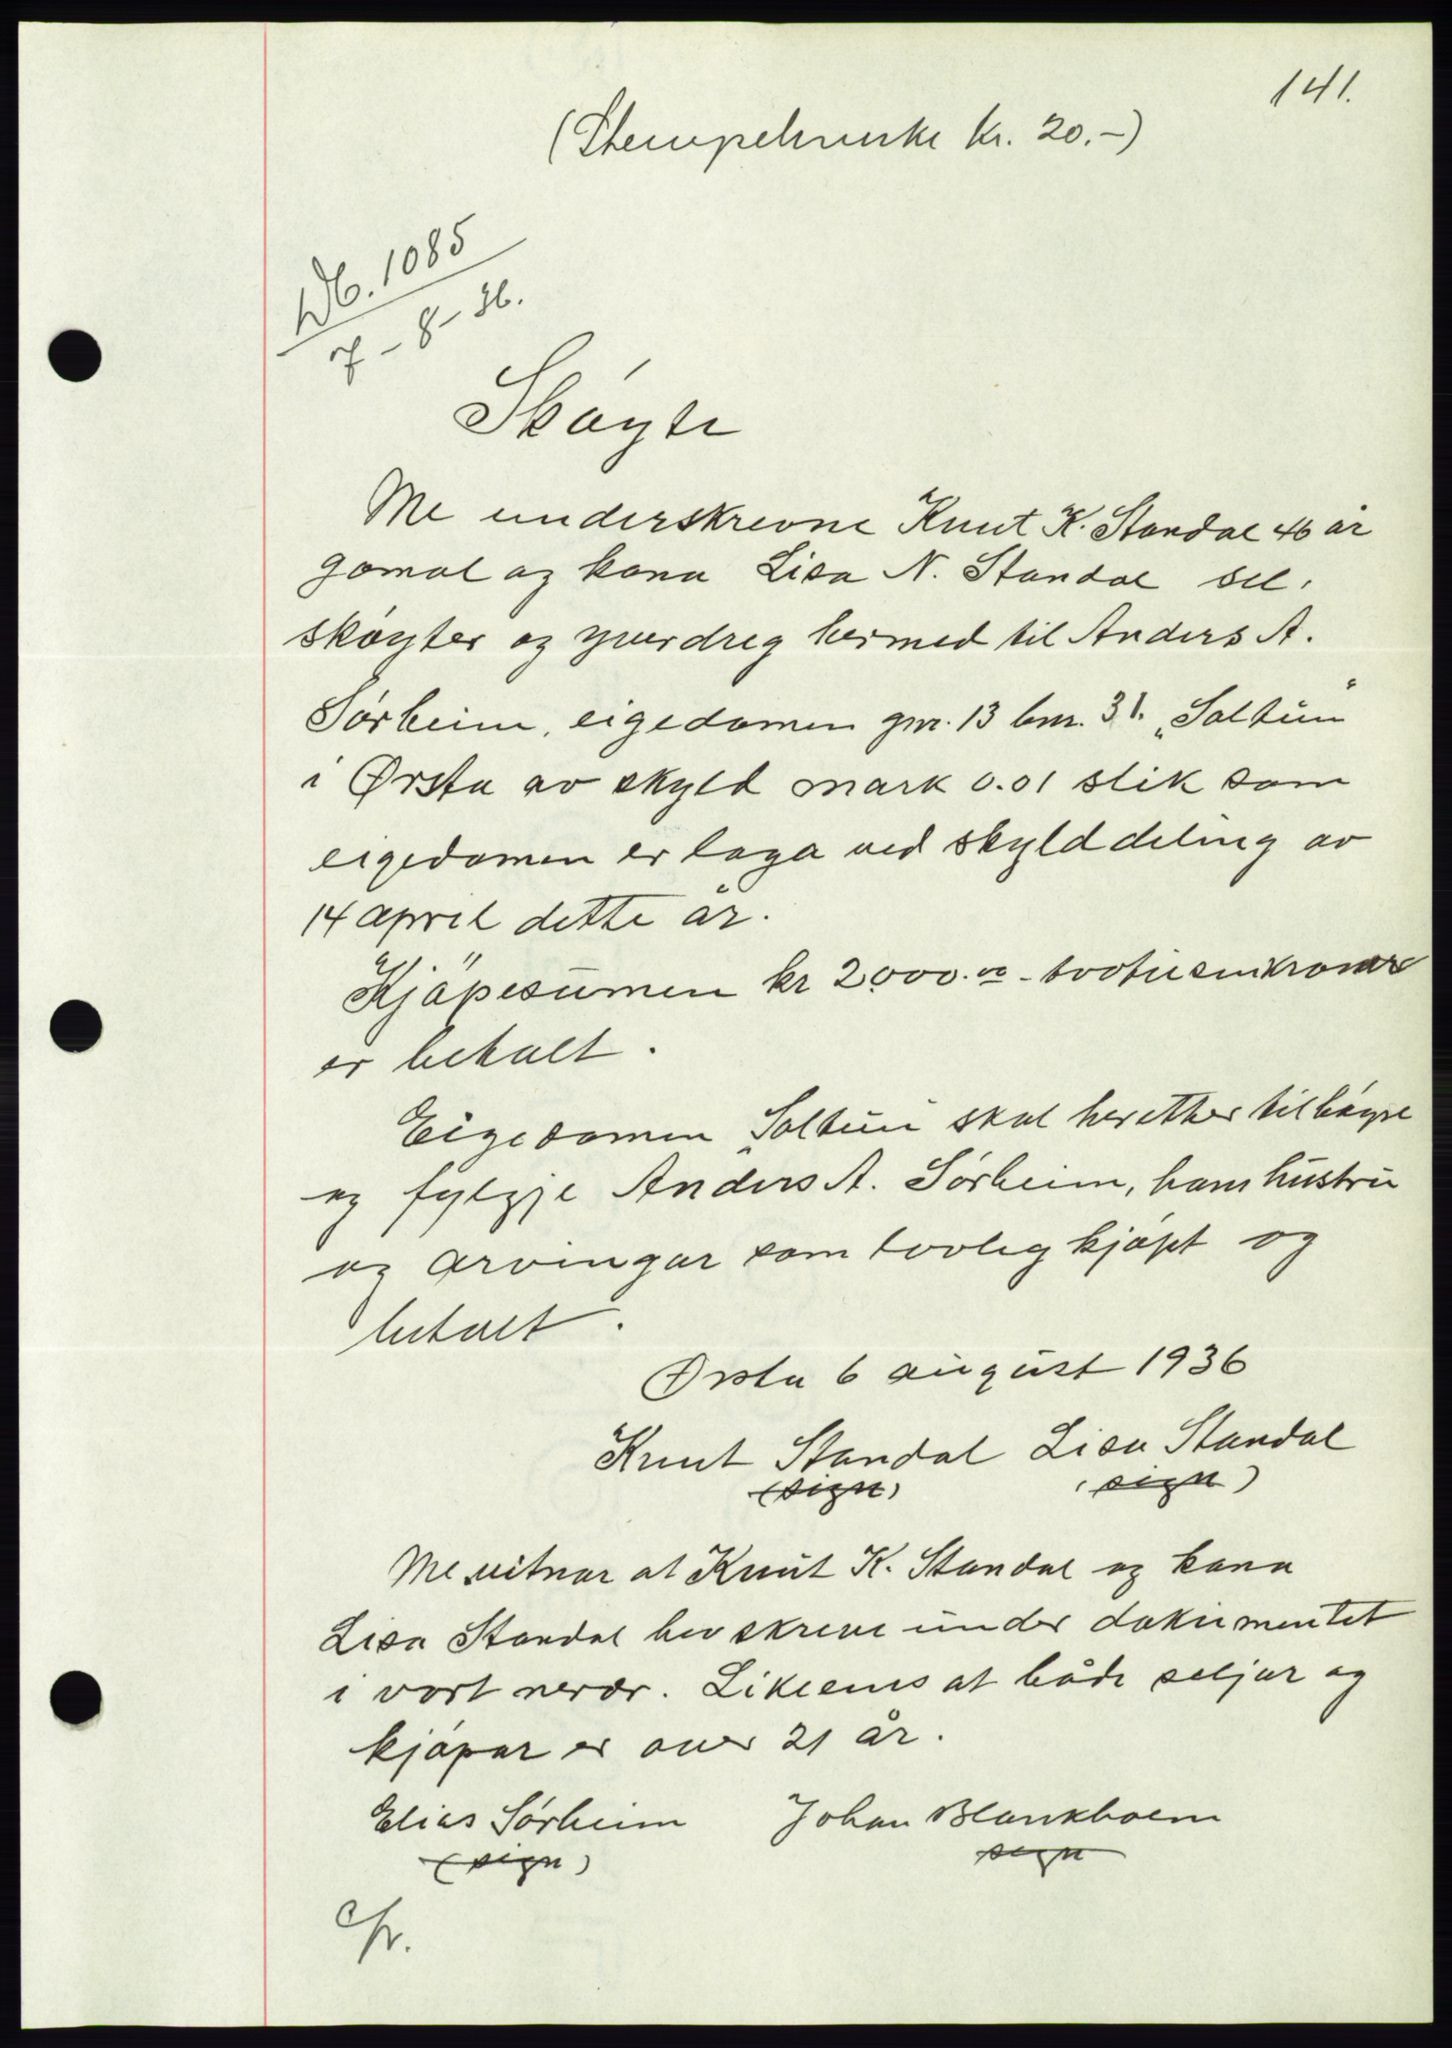 141.
(Stempelmerke kr. 20.-)
Db. 1085
7-8-36.
Skøyte
Me underskrevne Knut K. Standal 46 år
gamal og kona Lisa N. Standal sel,
skøyter og yverdreg hermed til Anders A.
Sørheim, eigedomen gnr. 13 bnr. 31. „Soltun"
i Ørsta av skyld mark 0.01 slik som
eigedomen er laga ved skylddeling av
14 april dette år.
Kjøpesumen kr 2000.00 - totusenkroner
er betalt.
Eigedomen „Soltun skal heretter tilhøyre
og fylgje Anders A. Sørheim, hans hustru
og arvingar som lovleg kjøpt og
betalt.
Ørsta 6 august 1936
Knut Standal Lisa Standal
(sign) (sign)
Me vitnar at Knut K. Standal og kona
Lisa Standal hev skreve under dokumentet
i vort nervær. Likeens at både seljar og
kjøpar er over 21 år.
Elias Sørheim Johan Blankholm
(sign) sign